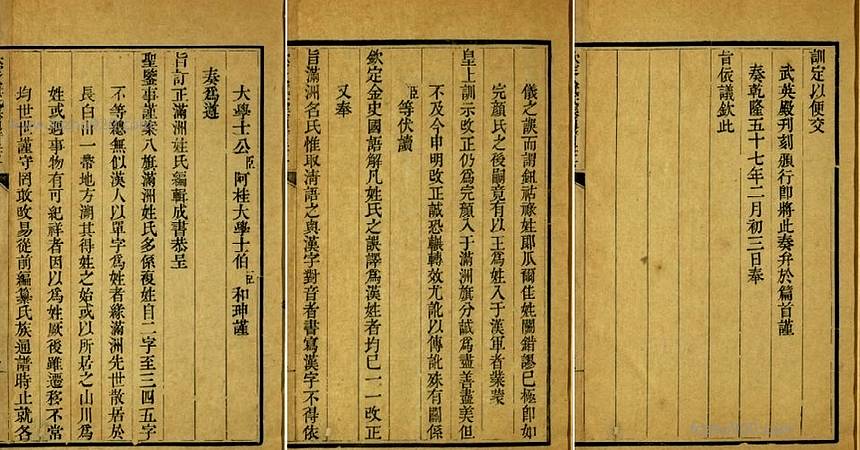 大學士公臣阿桂大學士伯臣和珅謹
奏爲遵
旨訂正滿洲姓氏編輯成書恭呈
聖鑒事謹案八旗滿洲姓氏多係複姓自二字至三四五字
不等總無似漢人以單字爲姓者緣滿洲先世散居於
長白山一帶地方溯其得姓之始或以所居之山川爲
姓或遇事物有可紀祥者因以爲姓厥後雖遷移不常
均世世謹守罔敢改易從前編纂氏族通譜時止就各
儀之誤而謂鈕祜祿姓郎瓜爾佳姓關錯謬已極卽如
完顏氏之後嗣竟有以王爲姓入于漢軍者業蒙
皇上訓示改正仍爲完顏入于滿洲旗分誠爲盡善盡美但
不及今申明改正誠恐輾轉效尤訛以傳訛殊有關係
臣等伏讀
欽定金史國語解凡姓氏之誤譯爲漢姓者均已一一改正
又奉
旨滿洲名氏惟取清語之與漢字對音者書寫漢字不得依
訓定以便交
武英殿刊刻頒行卽將此奏弁於篇首謹
奏乾隆五十七年二月初三日奉
旨依議欽此